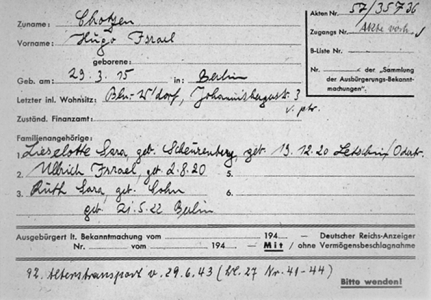 Zuname: Chotzen
Vorname: Hugo Israel
geborene:
Geb. am: 29. 3. 15 in: Berlin
Letzter inl. Wohnsitz: Bln-W'dorf, Johannisbergerstr. 3
v. ptr.
Zuständ. Finanzamt:
Akten Nr. 57/35736
Zugangs Nr. Akte vorh.
B-Liste Nr.
Nr. der „Sammlung der Ausbürgerungs-Bekanntmachungen".
Familienangehörige:
Lieselotte Sara, geb. Scheurenberg, geb. 19. 12. 20 Letschin/Odbr.
2. Ullrich Israel, geb 2.8.20 5.
3. Ruth Sara, geb. Cohn 6.
geb. 21.5.22 Berlin
Ausgebürgert lt. Bekanntmachung vom 194 Deutscher Reichs-Anzeiger
Nr. vom 194 Mit / ohne Vermögensbeschlagnahme
92. Alterstransport v. 29.6.43 (Bl. 27 Nr. 41-44)
Bitte wenden!